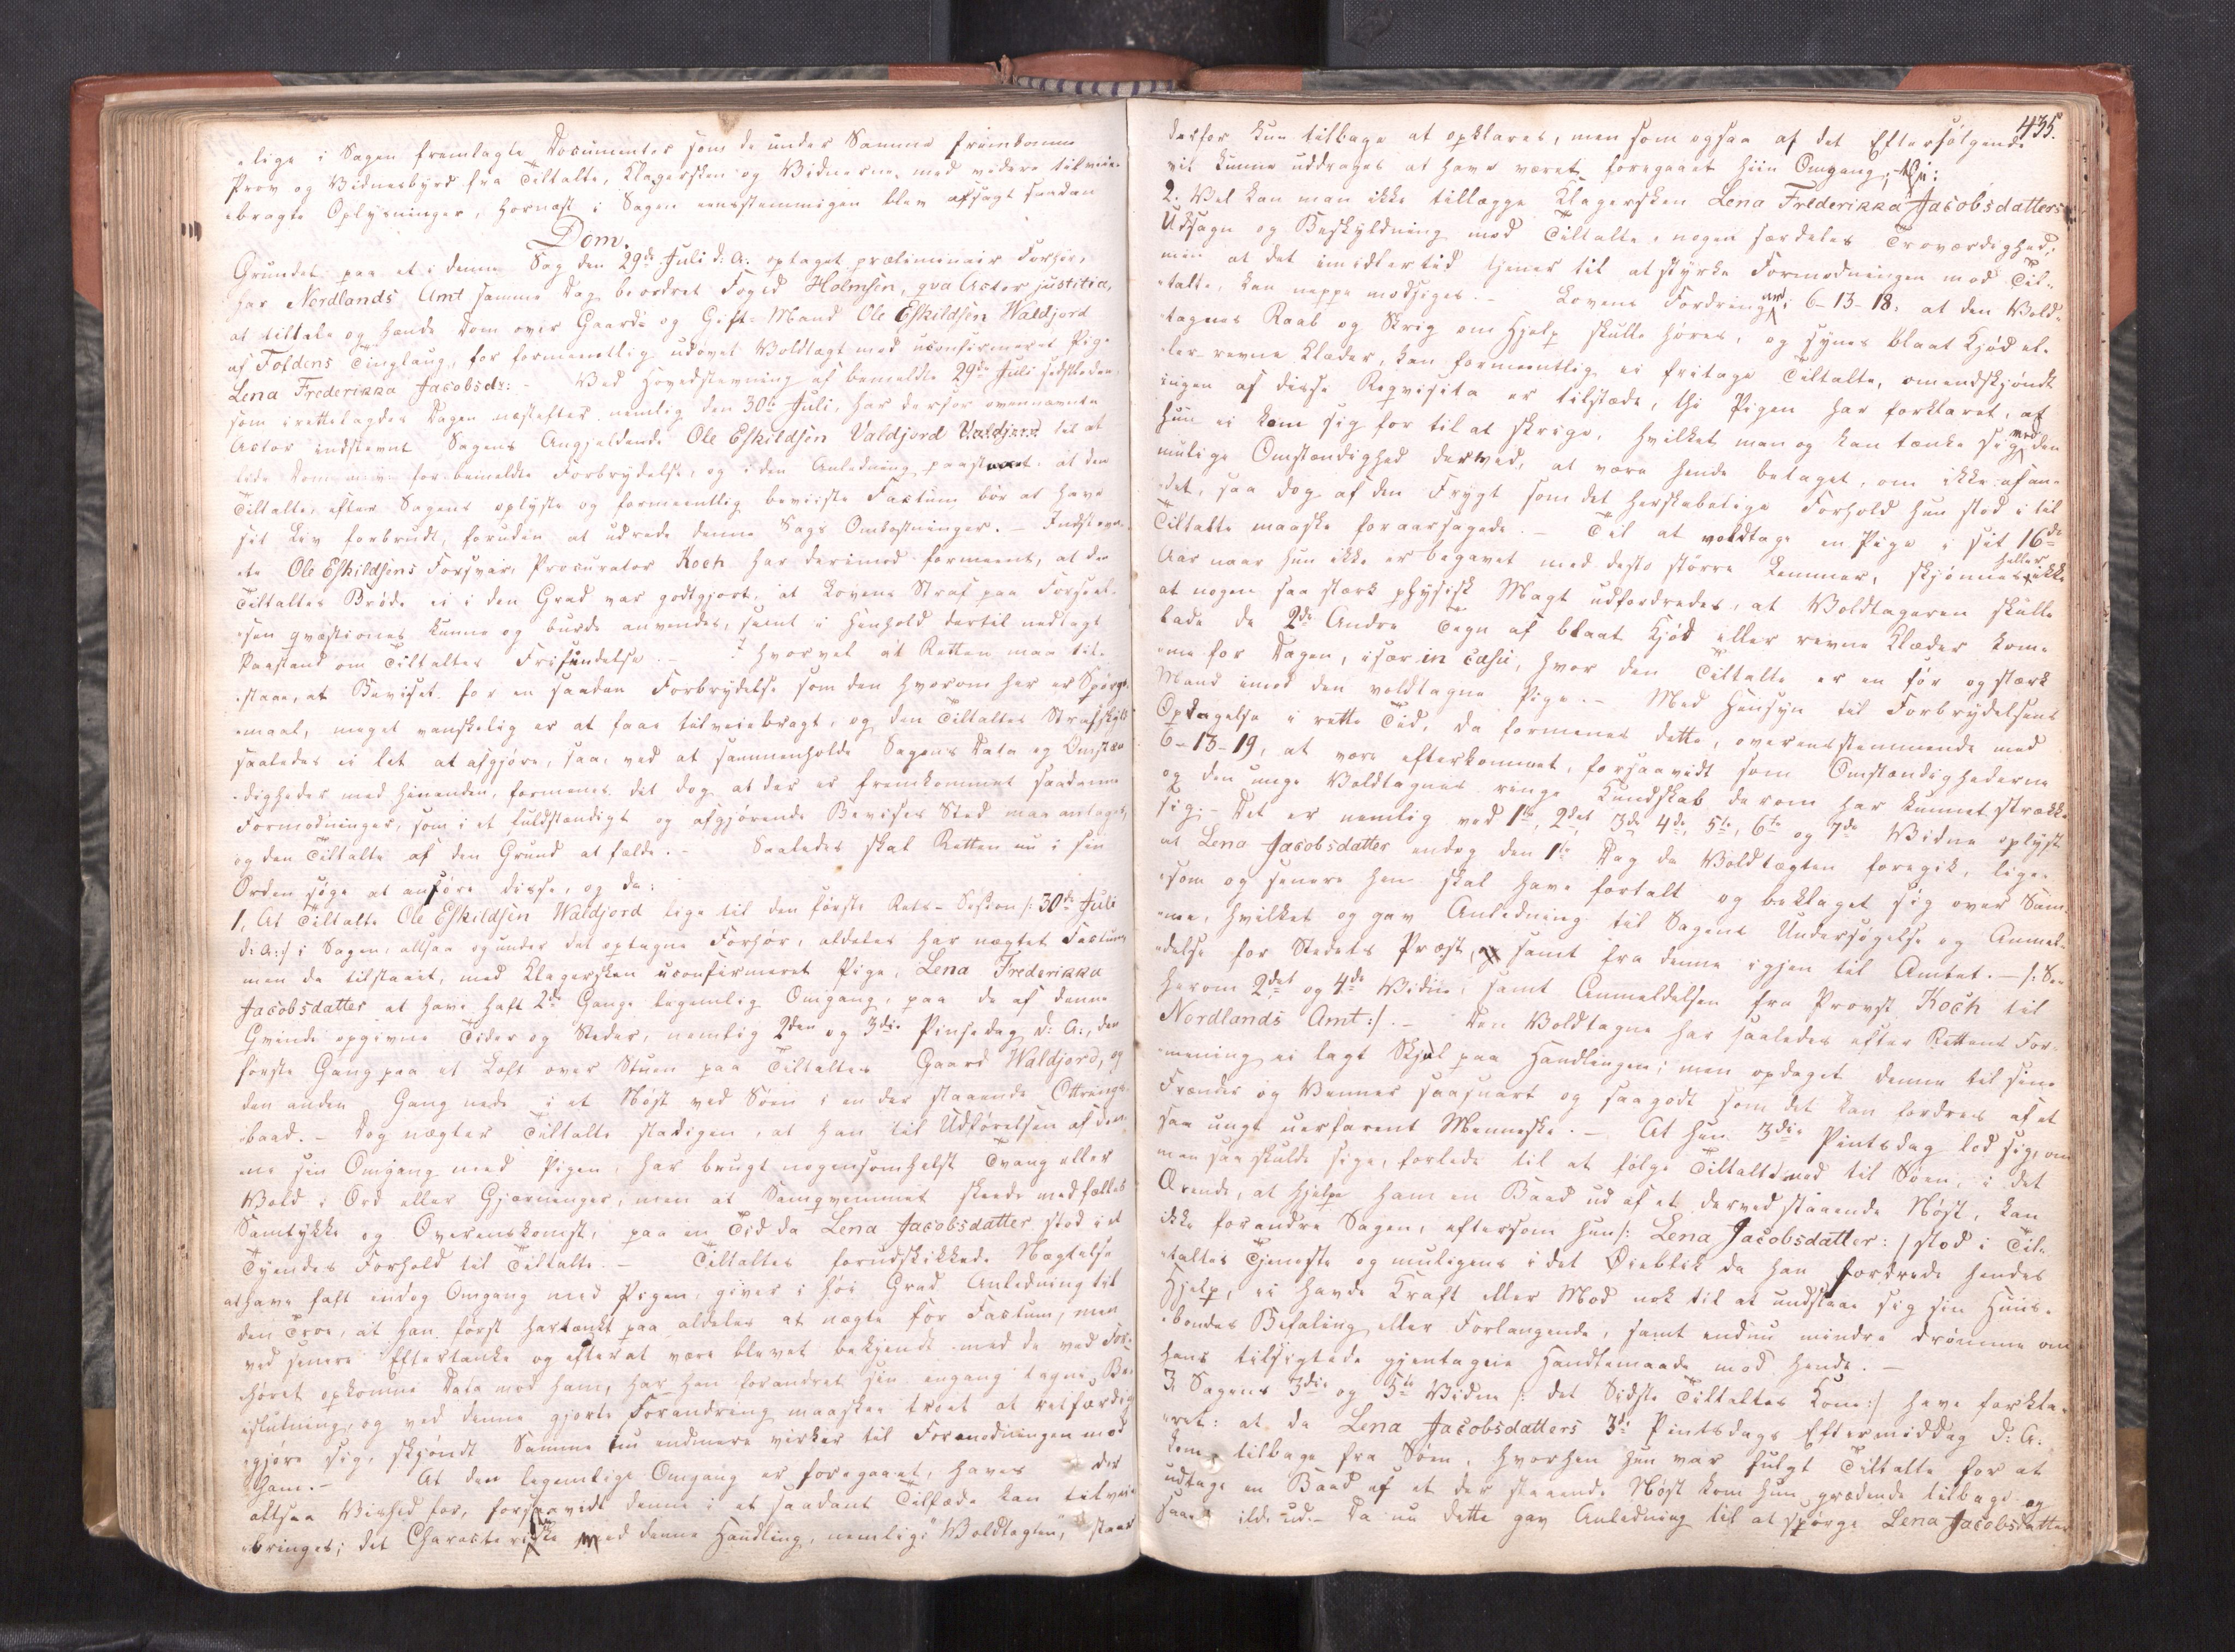 -lige i Sagen fremlagte Documenter som de under Samme fremkomne
Prov og Vidnesbyrd fra Tiltalte, Klagersken og Vidnerne, med videre tilveie-
-bragte Oplysninger, hvornæst i Sagen eensstemmigen blev afsagt saadan
Dom.
Grundet paa et i denne Sag den 29de Juli d: A: optaget præliminair Forhør,
har Nordlands Amt samme Dag beordret Foged Holmsen, qva Actor justitiæ,
at tiltale og hænde Dom over Gaard- og Gift-Mand Ole Eskildsen Waldjord
af Foldens Tinglaug, for formeentlig udøvet Voldtægt mod uconfirmeret Pige
Lena Frederikka Jacobsdr: - Ved Hovedstevning af bemeldte 29de Juli sidstleden,
som irettelagdes Dagen næstefter nemlig den 30te Juli, har derfor ovennævnte
Actor indstevnt Sagens Angjeldende Ole Eskildsen Valdjord til at
lide Dom for bemeldte Forbrydelse, og i den Anledning paastaaet, at den
Tiltalte, efter Sagens oplyste og formeentlig beviiste Factum bør at have
sit Liv forbrudt, foruden at udrede denne Sags Omkostninger. - Indstevn-
-te Ole Eskildsens Forsvar, Procurator Koch har derimod formeent, at den
Tiltaltes Brøde ei i den Grad var godtgjort, at Lovens Straf paa Forseel-
-sen qvæstiones kunne og burde anvendes, samt i Henhold dertil nedlagt
Paastand om Tiltaltes Frifindelse. - Hvorvel at Retten maa til-
-staae, at Beviset for en saadan Forbrydelse som den hvorom her er Spørgs-
-maal, meget vanskelig er at faae tilveiebragt, og den Tiltaltes Strafskyld
saaledes ei let at afgjøre, saa, ved at sammenholde Sagens Data og Omstæn-
-digheder med hinanden, formenes det dog at der er fremkommet saadanne
Formodninger, som i et fuldstændigt og afgjørende Bevises Sted maa antages,
og den Tiltalte af den Grund at fælde. - Saaledes skal Retten nu i sin
Orden søge at anføre disse, og da:
1, At Tiltalte Ole Eskildsen Waldjord lige til den første Rets-Session /: 30te Juli
d: A: :/ i Sagen, altsaa og under det optagne Forhør, aldeles har nægtet Factum,
men da tilstaaet, med Klagersken uconfirmeret Pige, Lena Frederikka
Jacobsdatter at have haft 2de Gange legemlig Omgang, paa de af denne
Qvinde opgivne Tider og Steder, nemlig 2den og 3die Pinsedag d: A:, den
første Gang paa et Loft over Stuen paa Tiltaltes Gaard Waldjord, og
den anden Gang nede i et Nøst ved Søen i en der staaende Ottrings-
baad. - Dog nægter Tiltalte stadigen, at han til Udførelsen af den-
-ne sin Omgang med Pigen, har brugt nogensomhelst Tvang eller
Vold i Ord eller Gjerninger, men at Samqvemmet skeede med fælles
Samtykke og Overenskomst, paa en Tid da Lena Jacobsdatter stod i et
Tyendes Forhold til Tiltalte. - Tiltaltes forudskikkede Nægtelse
at have haft endog Omgang med Pigen, giver i høi Grad Anledning til
den Troe, at han først har tænkt paa aldeles at nægte for Factum, men
ved senere Eftertanke og efterat være blevet bekjendt med de ved For-
-høret opkomne Data mod ham, har han forandret sin engang tagne Be-
-slutning, og ved denne gjorte Forandring maaskee troet at retfærdig-
-gjøre sig, skjøndt Samme nu endmere virker til Formodningen mod
ham. - At den legemlige Omgang er foregaaet, haves der
altsaa Vished for, forsaavidt denne i et saadant Tilfælde kan tilveie-
-bringes; det Characteristiske ved denne Handling, nemlig: "Voldtægten", staaer
435.
derfor kun tilbage at opklares, men som ogsaa af det Efterfølgende
vil kunne uddrages at have været foregaaet hiin Omgang; thi:
2. Vel kan man ikke tillægge Klagersken Lena Frederikka Jacobsdatters
Udsagn og Beskyldning mod Tiltalte, nogen særdeles Troværdighed,
men at det imidlertid tjener til at styrke Formodningen mod Til-
-talte, kan neppe modsiges. - Lovens Fordring ved 6-13-18, at den Vold-
-tagnes Raab og Skrig om Hjelp skulle høres, og synes blaat Kjød el-
-ler revne Klæder, kan formeentlig ei fritage Tiltalte, omendskjøndt
ingen af disse Reqvisita er tilstæde, thi Pigen har forklaret, at
hun ei kom sig for til at skrige, hvilket man og kan tænke sig ved den
mulige Omstændighed derved, at være hende betaget, om ikke af an-
-det, saa dog af den Frygt som det herskabelige Forhold hun stod i til
Tiltalte maaske foraarsagede. - Til at voldtage en Pige i sit 16de
Aar naar hun ikke er begavet med desto større Lemmer, skjønnes heller ikke
at nogen saa stærk physisk Magt udfordredes, at Voldtageren skulle
lade de 2de Andre Tegn af blaat Kjød eller revne Klæder kom-
-me for Dagen, især in casu, hvor den Tiltalte er en før og stærk
Mand imod den voldtagne Pige. - Med Hensyn til Forbrydelsens
Opdagelse i rette Tid, da formenes dette, overensstemmende med
6-13-19, at være efterkommet, forsaavidt som Omstændighederne
og den unge Voldtagnes ringe Kundskab derom har kunnet strække
sig. - Det er nemlig ved 1ste, 2det, 3die 4de, 5te, 6te og 7de Vidne oplyst
at Lena Jacobsdatter endog den 1ste Dag da Voldtægten foregik, lige-
-som og senere hen skal have fortalt og beklaget sig over Sam-
-me, hvilket og gav Anledning til Sagens Undersøgelse og Anmel-
-delse for Stedets Præst, samt fra denne igjen til Amtet. - /: Se
herom 2det og 4de Vidne, samt Anmeldelsen fra Provst Koch til
Nordlands Amt :/. - Den Voldtagne har saaledes efter Rettens For-
-mening ei lagt Skjul paa Handlingen; men opdaget denne til sine
Frænder og Venner saasnart og saagodt som det kan fordres af et
saa ungt uerfarent Menneske. - At hun 3die Pintsdag lod sig, om
man saa skulde sige, forlede til at følge Tiltalte ned til Søen, i det
Ærende, at hjelpe ham en Baad ud af et derved staaende Nøst, kan
ikke forandre Sagen, eftersom hun /: Lena Jacobsdatter :/ stod i Til-
-taltes Tjeneste og muligens i det Øieblik da han fordrede hendes
Hjelp, ei havde Kraft eller Mod nok til at undslaae sig sin Huus-
-bondes Befaling eller Forlangende, samt endnu mindre drømme om
hans tilsigtede gjentagne Handlemaade mod hende. -
3, Sagens 3die og 5te Vidne /: det Sidste Tiltaltes Kone :/ have forkla-
-ret: at da Lena Jacobsdatters 3die Pintsdags Eftermiddag d: A:
kom tilbage fra Søen, hvorhen hun var fulgt Tiltalte for at
udtage en Baad af et der staaende Nøst kom hun grædende tilbage og
saae ilde ud. - Da nu dette gav Anledning til at spørge Lena Jacobsdatter